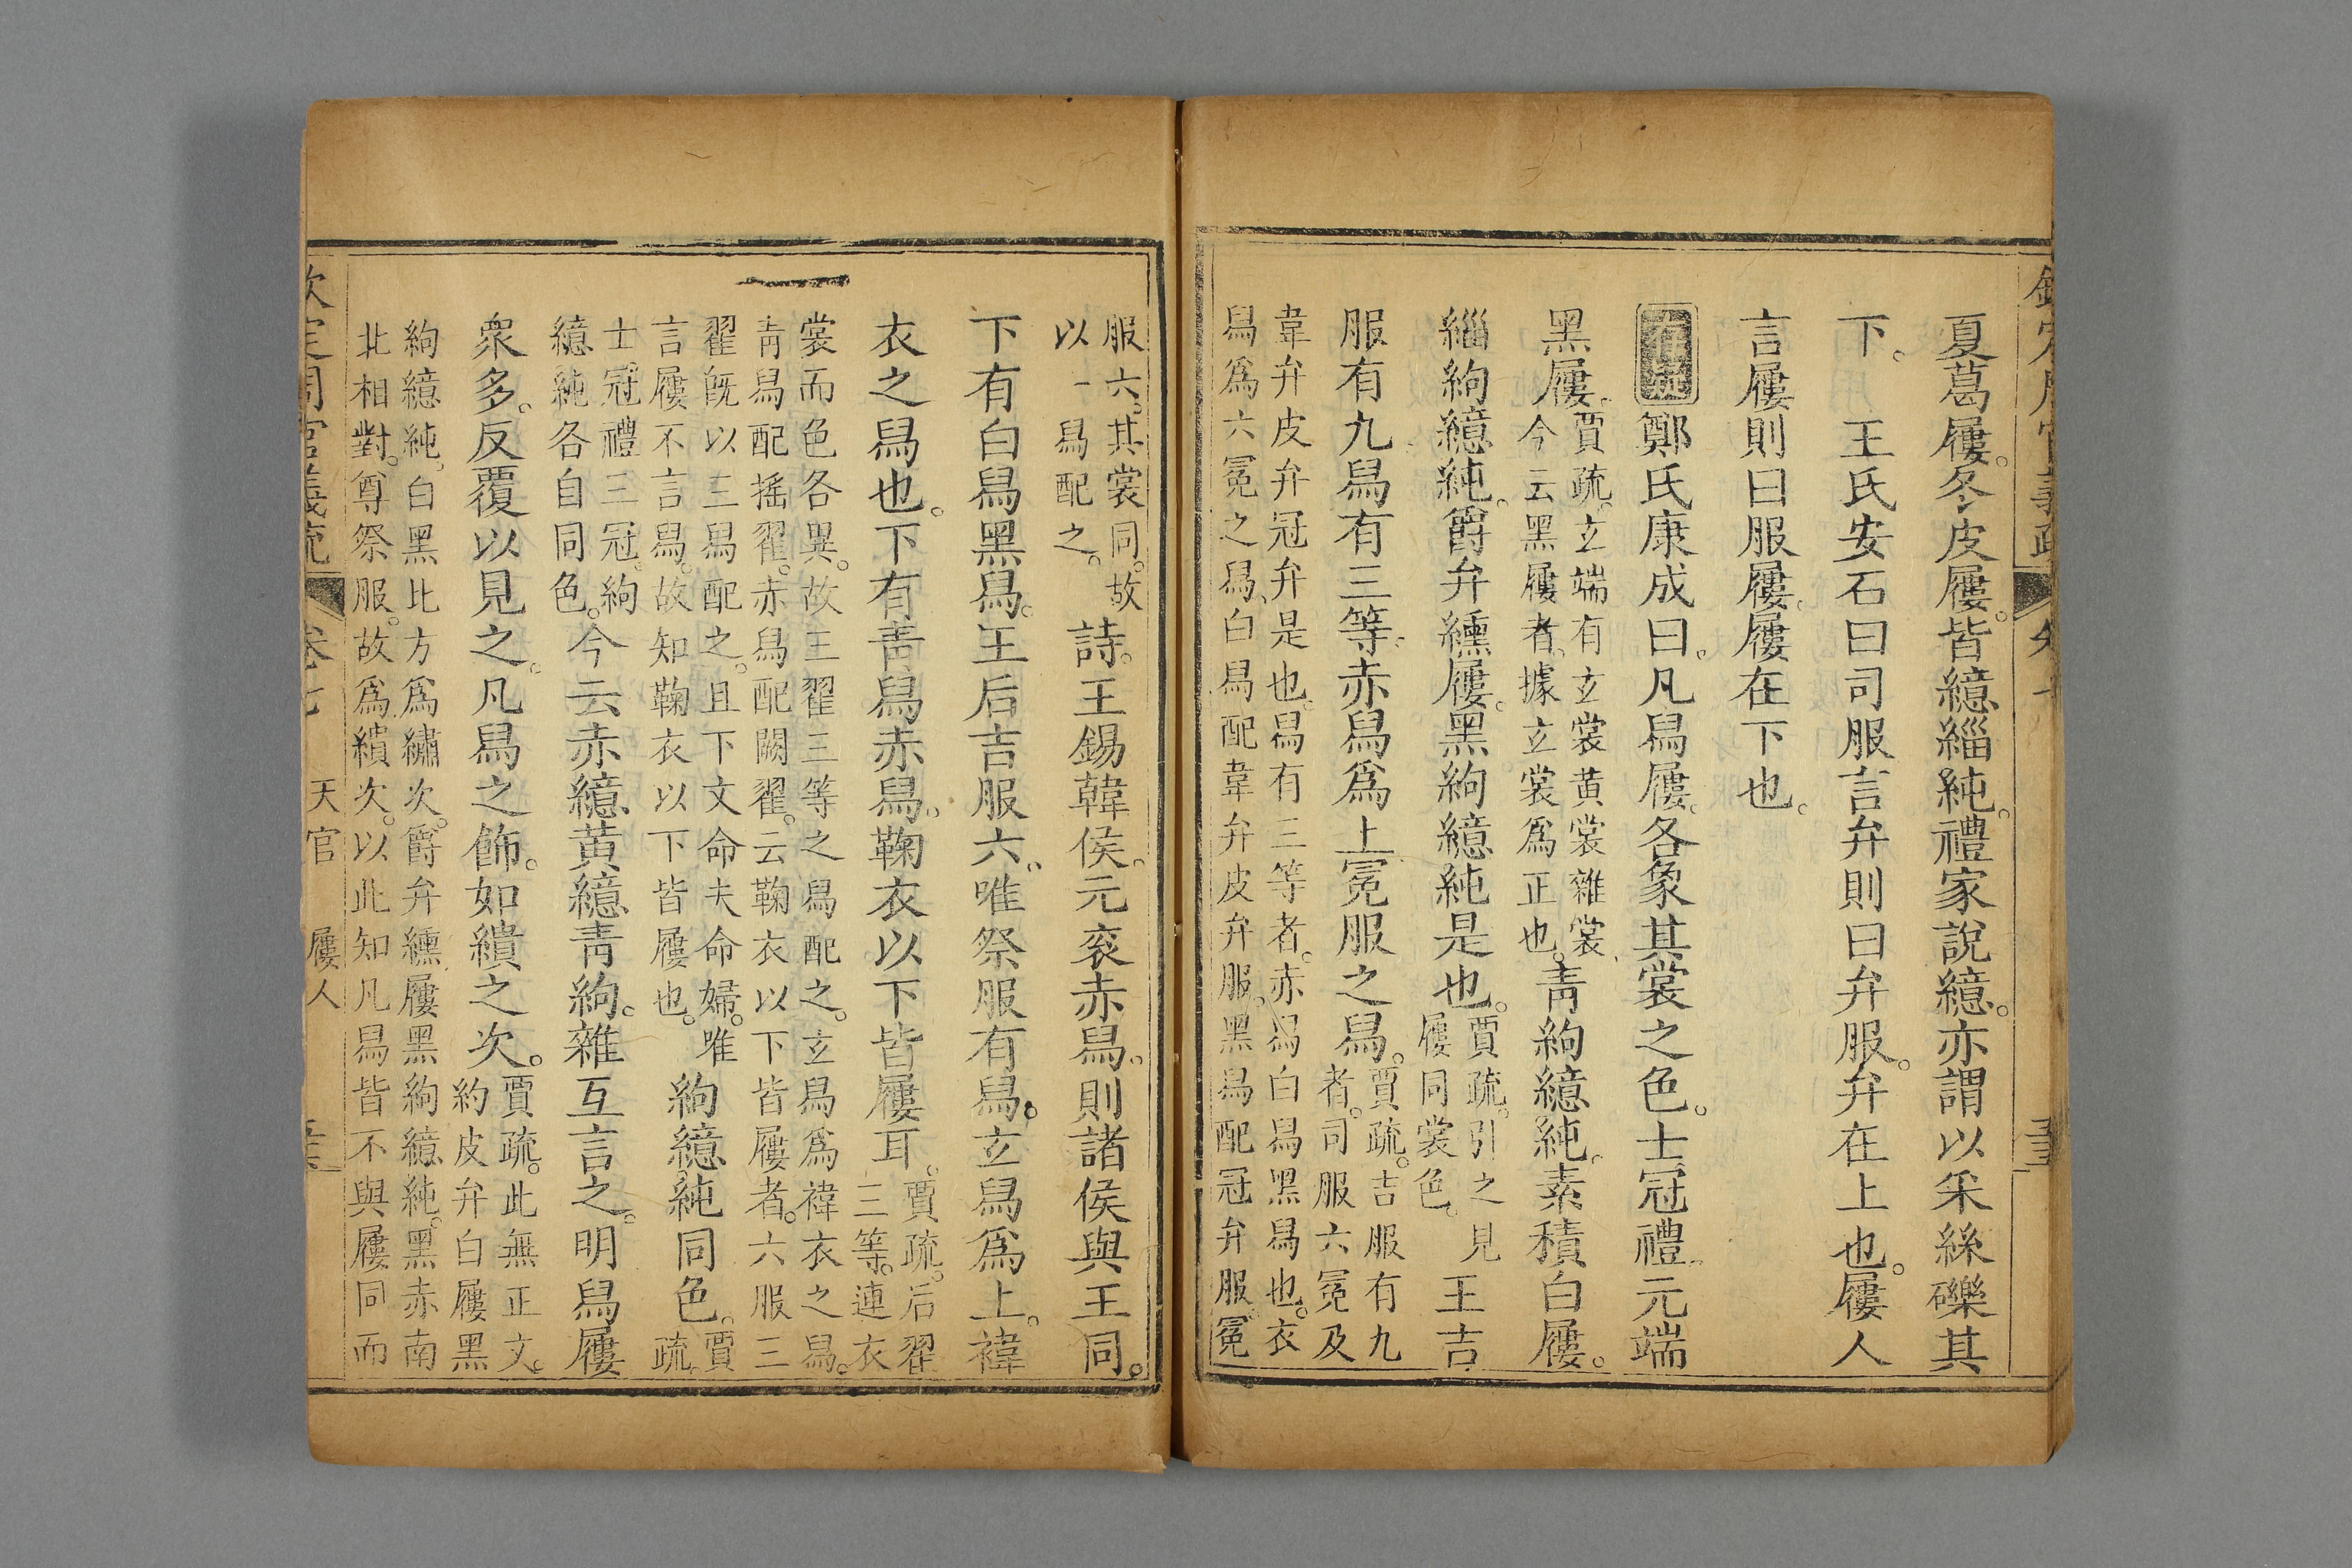 夏葛屨。冬皮屨。皆繶緇純。禮家說繶。亦謂以采絲礫其
下。王氏安石曰司服言弁則曰弁服。弁在上也。屨人
言屨則曰服屨。屨在下也。
鄭氏康成曰。凡舃屨。各象其裳之色。士冠禮。元端
黑屨。賈疏。玄端有玄裳黄裳雜裳、今云黑屨者。據玄裳爲正也。青絇繶純。素積白屨。
緇絇繶純。爵弁纁屨。黑絇繶純是也。賈疏。引之見屨同裳色。王吉
服有九舃有三等。赤舃爲上冕服之舃。賈疏。吉服有九者。司服六冕及
韋弁皮弁冠弁是也。舃有三等者。赤舃白舃黑舃也。衣
舃爲六冕之舃、白舃配韋弁皮弁服。黑舃配冠弁服。冕
服六。其裳同。故以一舃配之。詩。王錫韓侯。元袞赤舃。則諸侯與王同。
下有白舃黑舃。王后吉服六。唯祭服有舃。玄舃爲上。褘
衣之舃也。下有青舃赤舃。鞠衣以下皆屨耳。賈疏。后翟三等。連衣
裳而色各異。故王翟三等之舃配之。玄舃爲褘衣之舃。
青舃配搖翟。赤舃配闕翟。云鞠衣以下皆屨者。六服三
翟旣以三舃配之。且下文命夫命婦。唯言屨不言舃。故知鞠衣以下皆屨也。絇繶純同色。賈疏
士冠禮三冠。絇繶純各自同色。今云赤繶黄繶青絇。雜互言之。明舃屨
衆多。反覆以見之。凡舃之飾。如繢之次。賈疏。此無正文。約皮弁白屨黑
絇繶純。白黑比方爲繡次。爵弁纁屨黑絇繶純。黑赤南
北相對。尊祭服。故爲繢次。以此知凡舃皆不與屨同而
欽定周官義疏 卷七 天官 屨人